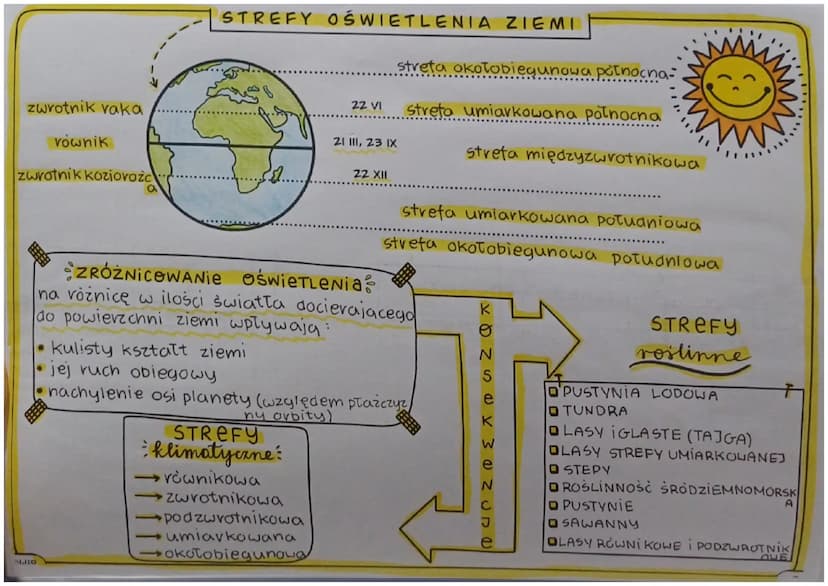 STREFY OŚWIETLENIA ZIEMI
strefa okołobiegunowa północna
zwrotnik raka
22 VI
strefa umiarkowana północna
równik
21 III, 23 IX
strefa międzyzwrotnikowa
zwrotnik koziorożc
a
22 XII
strefa umiarkowana południowa
strefa okołobiegunowa południowa
ZRÓŻNICOWANIE OŚWIETLENIA
na różnicę w ilości światła docierającego
do powierzchni ziemi wpływają:
• kulisty kształt ziemi
• jej ruch obiegowy
• nachylenie osi planety (względem płaszczyz
ny orbity)
KONSEKWENCJE
STREFY
roślinne
PUSTYNIA LODOWA
TUNDRA
LASY IGLASTE (TAJGA)
LASY STREFY UMIARKOWANEJ
STEPY
ROŚLINNOŚĆ ŚRÓDZIEMNOMORSK
A
PUSTYNIE
SAWANNY
LASY RÓWNIKOWE I PODZWROTNIK
OWE
STREFY
klimatyczne:
→ równikowa
→ zwrotnikowa
→ podzwrotnikowa
→ umiarkowana
→ okołobiegunowa